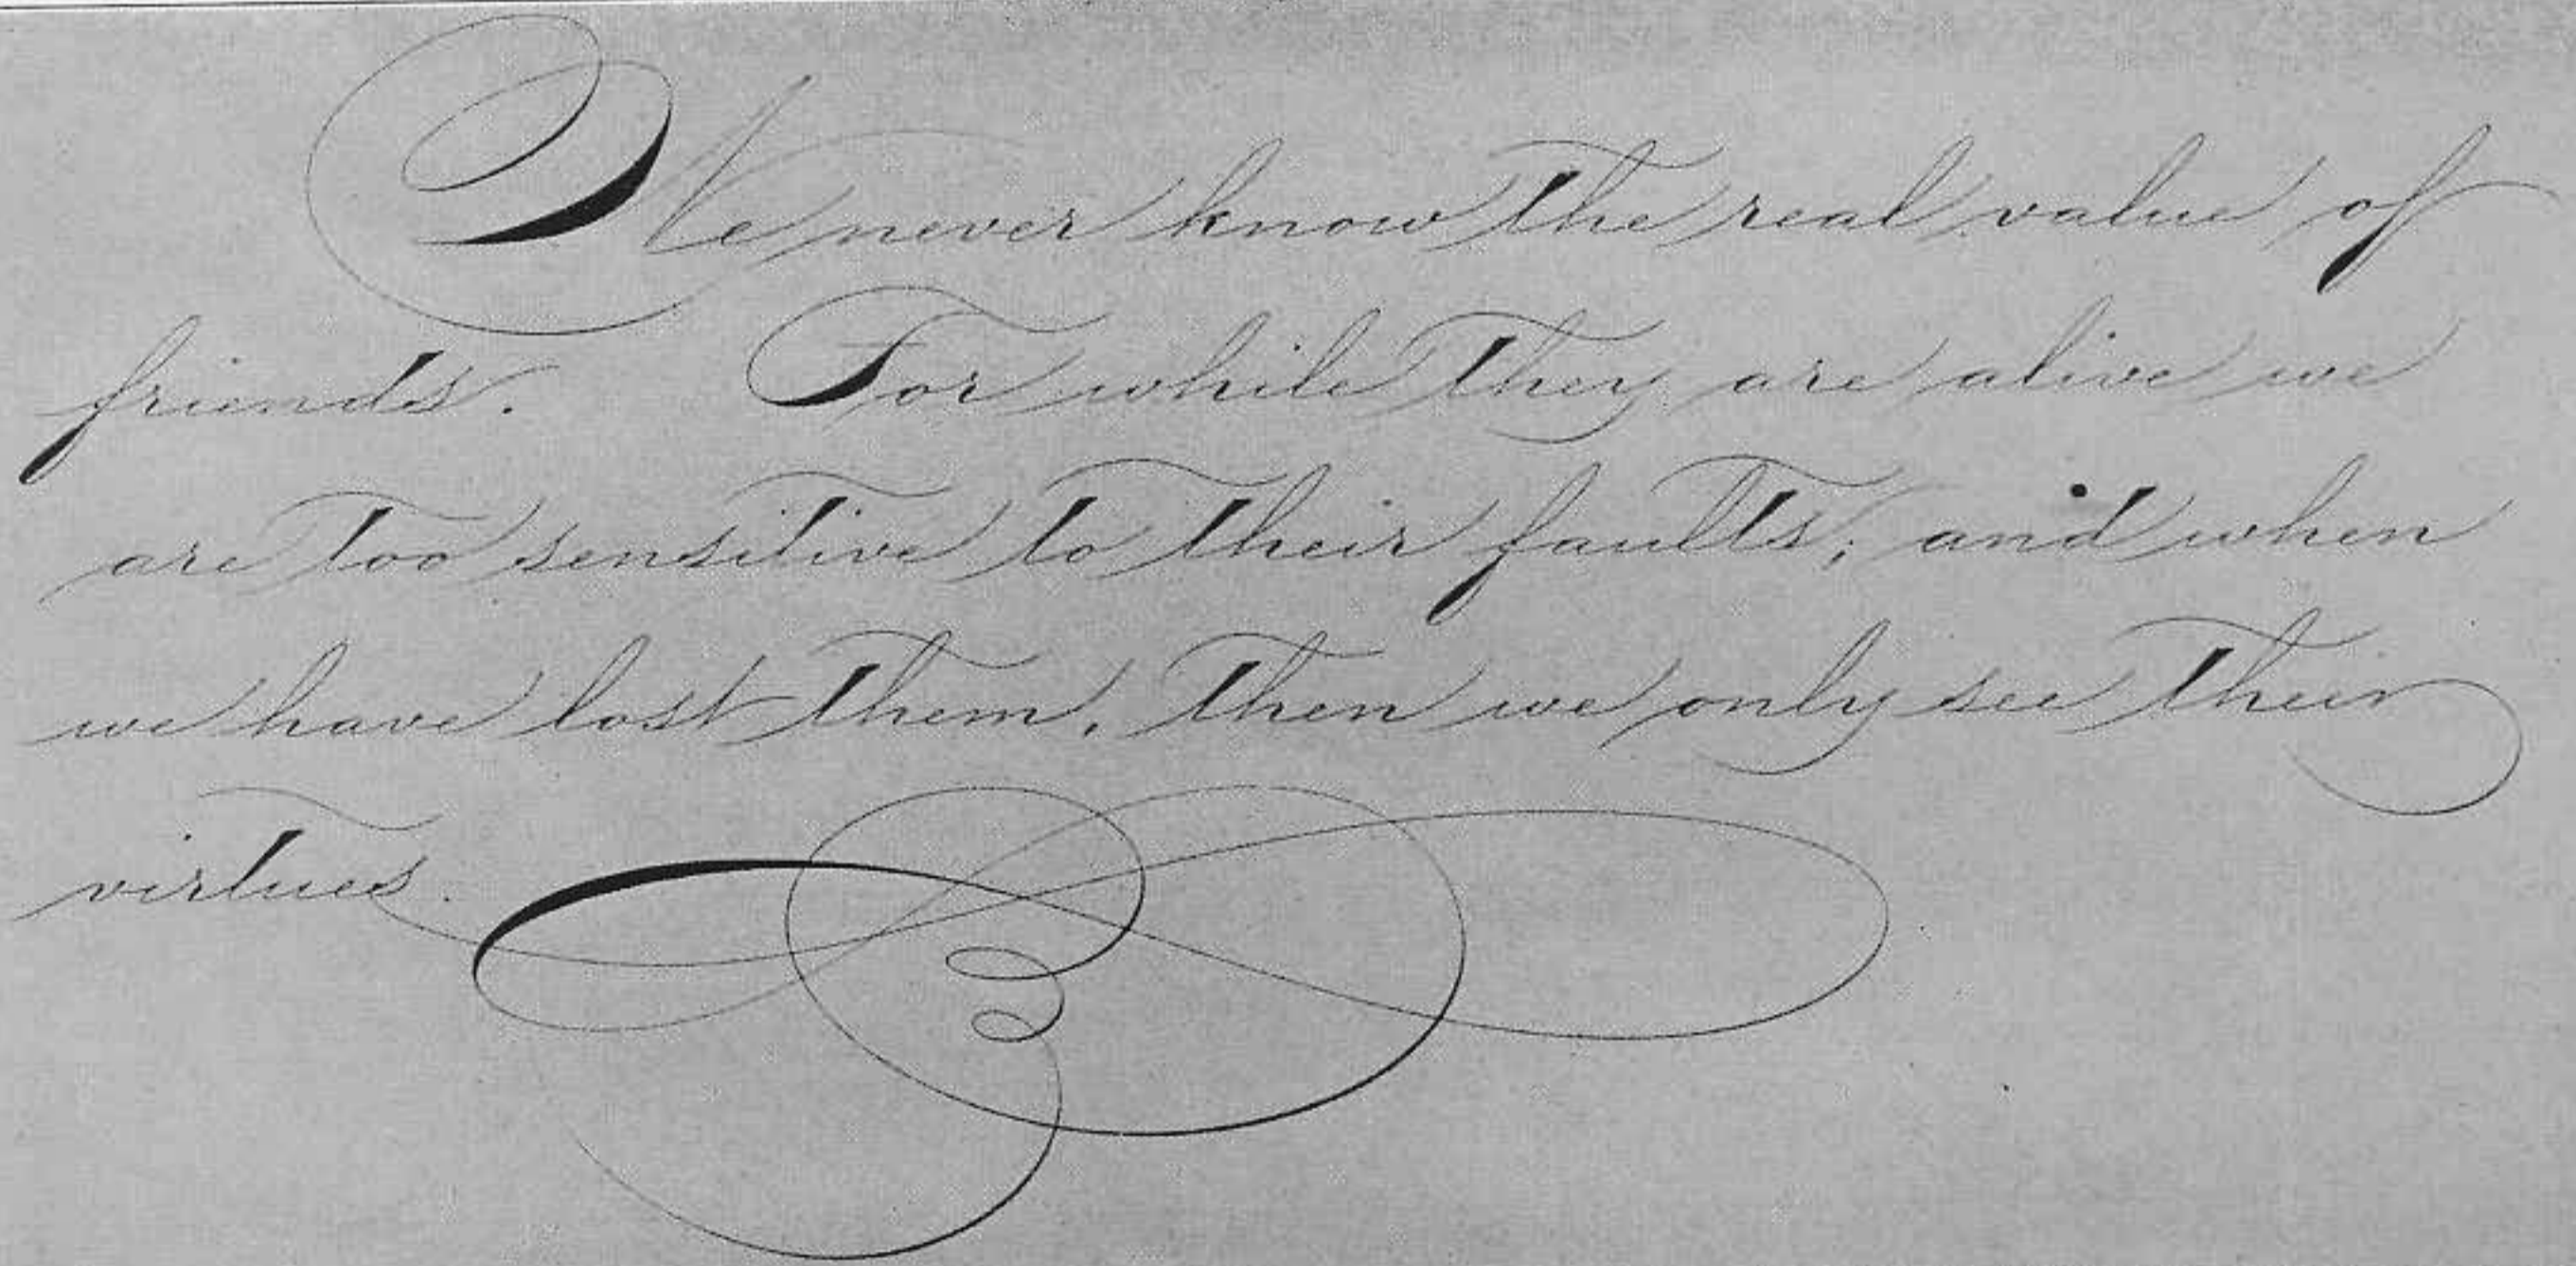 We never know the real value of
friends. For while they are alive we
are too sensitive to their faults; and when
we have lost them, then we only see their
virtues.